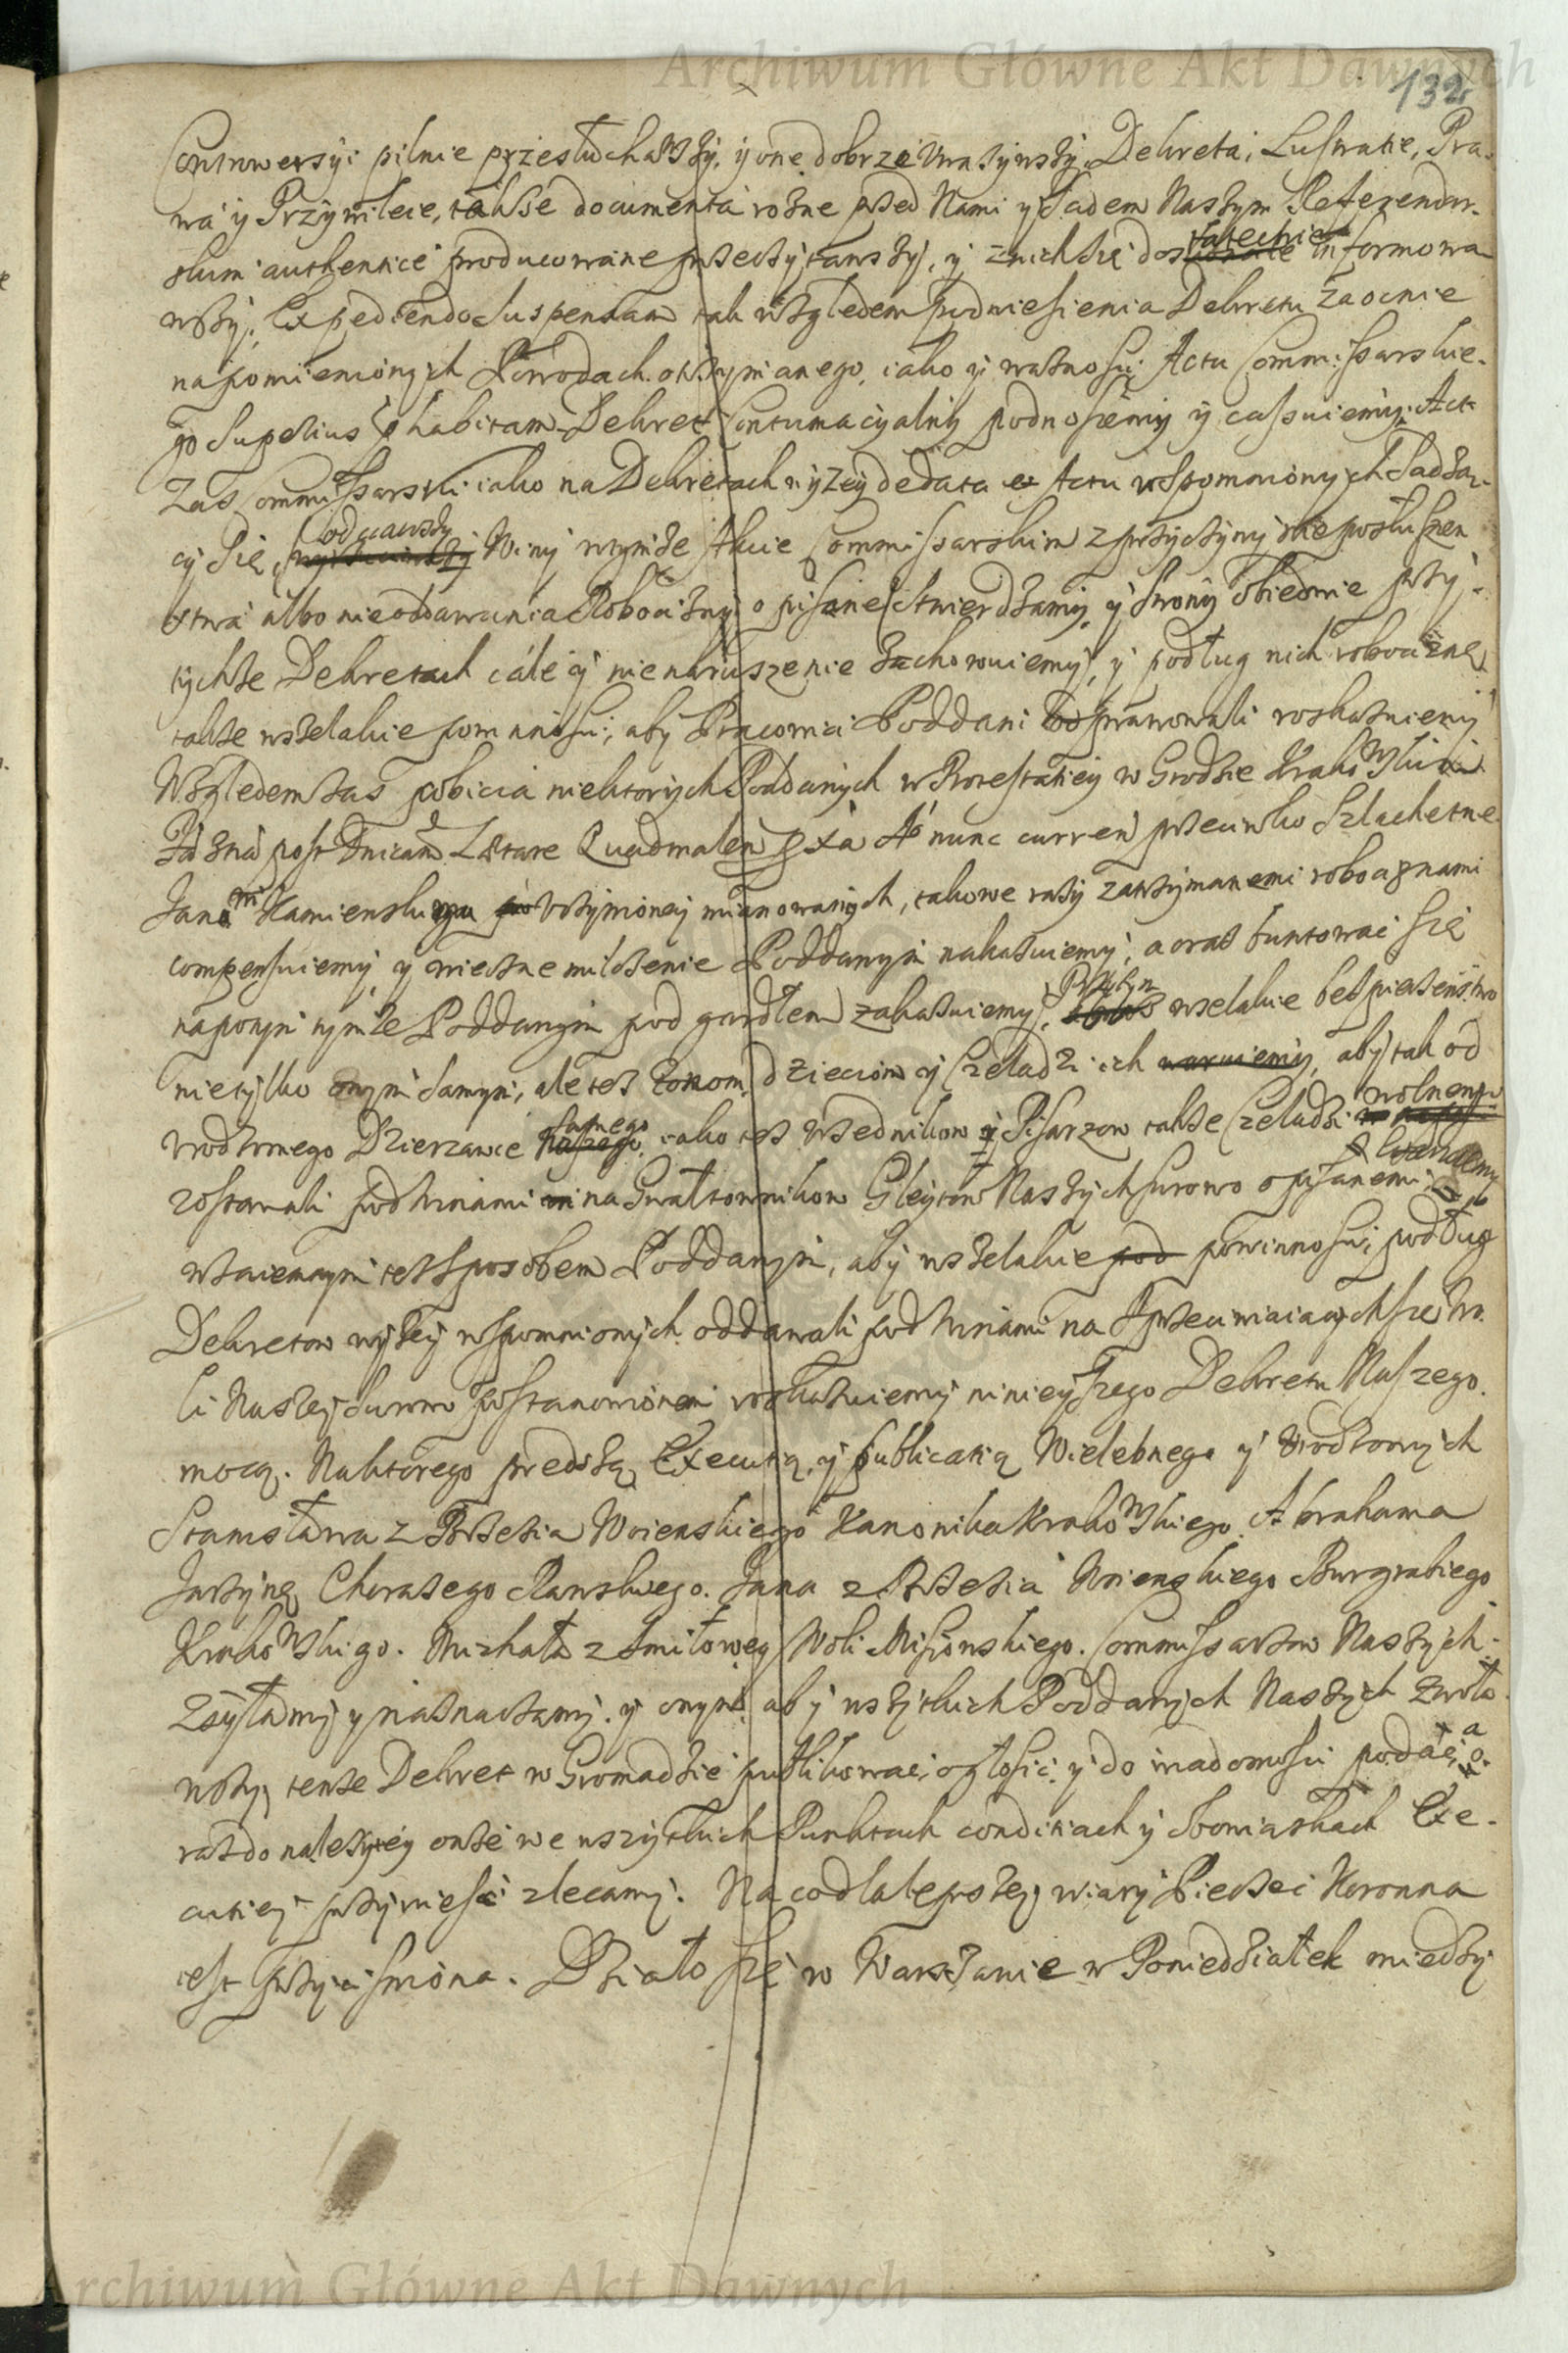 Archiwum Główne Akt Dawnych
132
Controwersyi pilnie przesłuchawszy, y one dobrze uwazywszy, Dekreta, Lustratie, Pra-
wa y Przywileie, także documenta rożne przed Nami y Sądem Naszym Referendar-
skim authentice producowane przeczytawszy, y z nich się dostatecznie informowa-
wszy, Expediendo Suspensam tak względem podniesienia Dekretu zaocznie
na pomienionych Powodach otrzymanego, iako y ważności Actu Commissarskie-
go superius habitam Dekret Contumacyalny podnosiemy y cassuiemy, Act
zas Commissarski iako na Dekretach wyzey de data et Actu wspomnionych Sadzą-
cy się, odjąwszy Winy wtymże Akcie Commissarskim z przyczyny nieposłuszen
stwa albo nieoddawania Robocizny opisane stwierdzamy, y strony obiedwie przy
tychże Dekretach cále y nienaruszenie zachowuiemy, y podług nich robocizne
także wszelakie powinnosci, aby Pracowici Poddani odprawowali roskazuiemy
Względem zas pobicia niektorych Poddanych w Protestatiey w Grodzie Krakowskim
post Dnicam Lætare Quadmalem Ao nunc curren przeciwko Szlachetne
Janowi Kamienskiemu uczynioney mianowanych, takowe razy zatrzymanemi robociznami
compensuiemy, y wieczne milczenie Poddanym nakazuiemy, a oraz buntowac się
napotym tymże Poddanym pod gardłem zakazuiemy. Przytym wselakie bezpieczenstwo
nietylko onym samym, ale tez żonom, dzieciom y Czeladzi ich waruiemy, aby tak od
Urodzonego Dzierzawce samego, iako tez Urzednikow y Pisarzow także Czeladzi wolnemi
zostawali pod winami na Gwałtownikow Gleytow Naszych surowo opisanemi
wzaiemnym tez sposobem Poddanym, aby wszelakie powinnosci podług
Dekretow wyżey wspomnionych oddawali pod winami na sprzeciwiaiących się Wo-
li Naszey surowo postanowionemi roskazuiemy ninieyszego Dekretu Naszego
mocą. Na ktorego predszą Executią, y publicatią Wielebnego y Urodzonych
Stanisława z Brzezia Woienskiego Kanonika Krakowskiego, Abrahama
Chorazego Rawskiego, Jana z Brzezia Woienskiego Burgrabiego
Krakowskiego, Michała z Smiłowey Woli Commissarzow Naszych
Zsyłamy y naznaczamy, y onym, aby wszytkich Poddanych Naszych zwoła-
wszy, tenze Dekret w Gromadzie publikowac, ogłosic y do wiadomosci podac, a o-
raz do należytey onże we wszytkich Punktach conditiach y Obowiaskach Exe-
cutiey przywiesc zlecamy. Na co dla lepszey wiary Pieczec Koronna
iest przycisniona. Działo się w Warszawie w Poniedziałek miedzy
Archiwum Główne Akt Dawnych